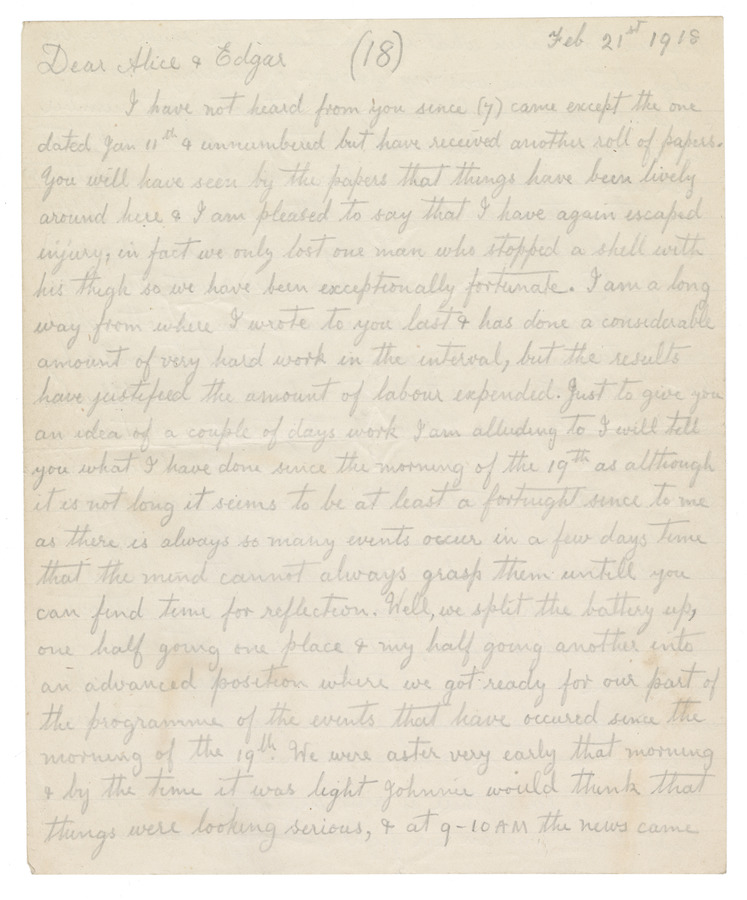 Feb 21st 1918
Dear Alice & Edgar (18)
I have not heard from you since (7) came except the one
dated Jan 11th & unnumbered but have received another roll of papers.
You will have seen by the papers that things have been lively
around here & I am pleased to say that I have again escaped
injury, in fact we only lost one man who stopped a shell with
his thigh so we have been exceptionally fortunate. I am a long
way from where I wrote to you last & has done a considerable
amount of very hard work in the interval, but the results
have justifeed the amount of labour expended. Just to give you
an idea of a couple of days work I am alluding to I will tell
you what I have done since the morning of the 19th as although
it is not long it seems to be at least a fortnight since to me
as there is always so many events occur in a few days time
that the mind cannot always grasp them untill you
can find time for reflection. Well, we split the battery up,
one half going one place & my half going another into
an advanced position where we got ready for our part of
the programme of the events that have occured since the
morning of the 19th. We were aster very early that morning
& by the time it was light Johnnie would think that
things were looking serious, & at 9-10 AM the news came